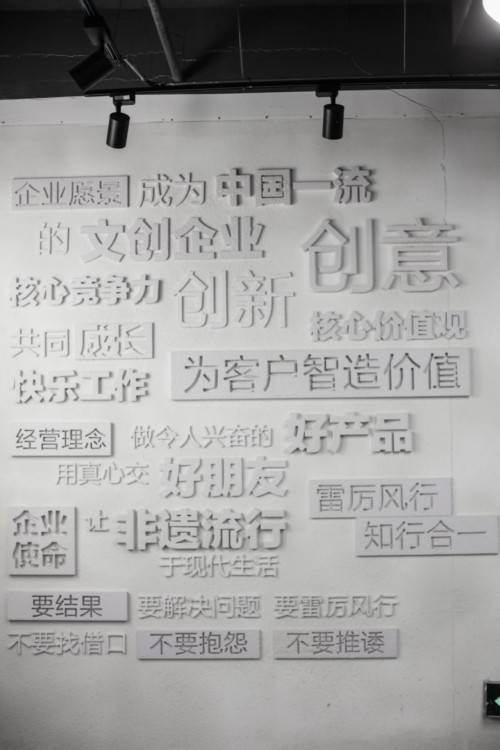 企业愿景 成为 中国一流
的 文创企业 创意
核心竞争力 创新 核心价值观
共同 成长 为客户智造价值
快乐工作
经营理念 做令人兴奋的 好产品
用真心交 好朋友 雷厉风行
企业使命 让 非遗流行 知行合一
于现代生活
要结果 要解决问题 要雷厉风行
不要找借口 不要抱怨 不要推诿